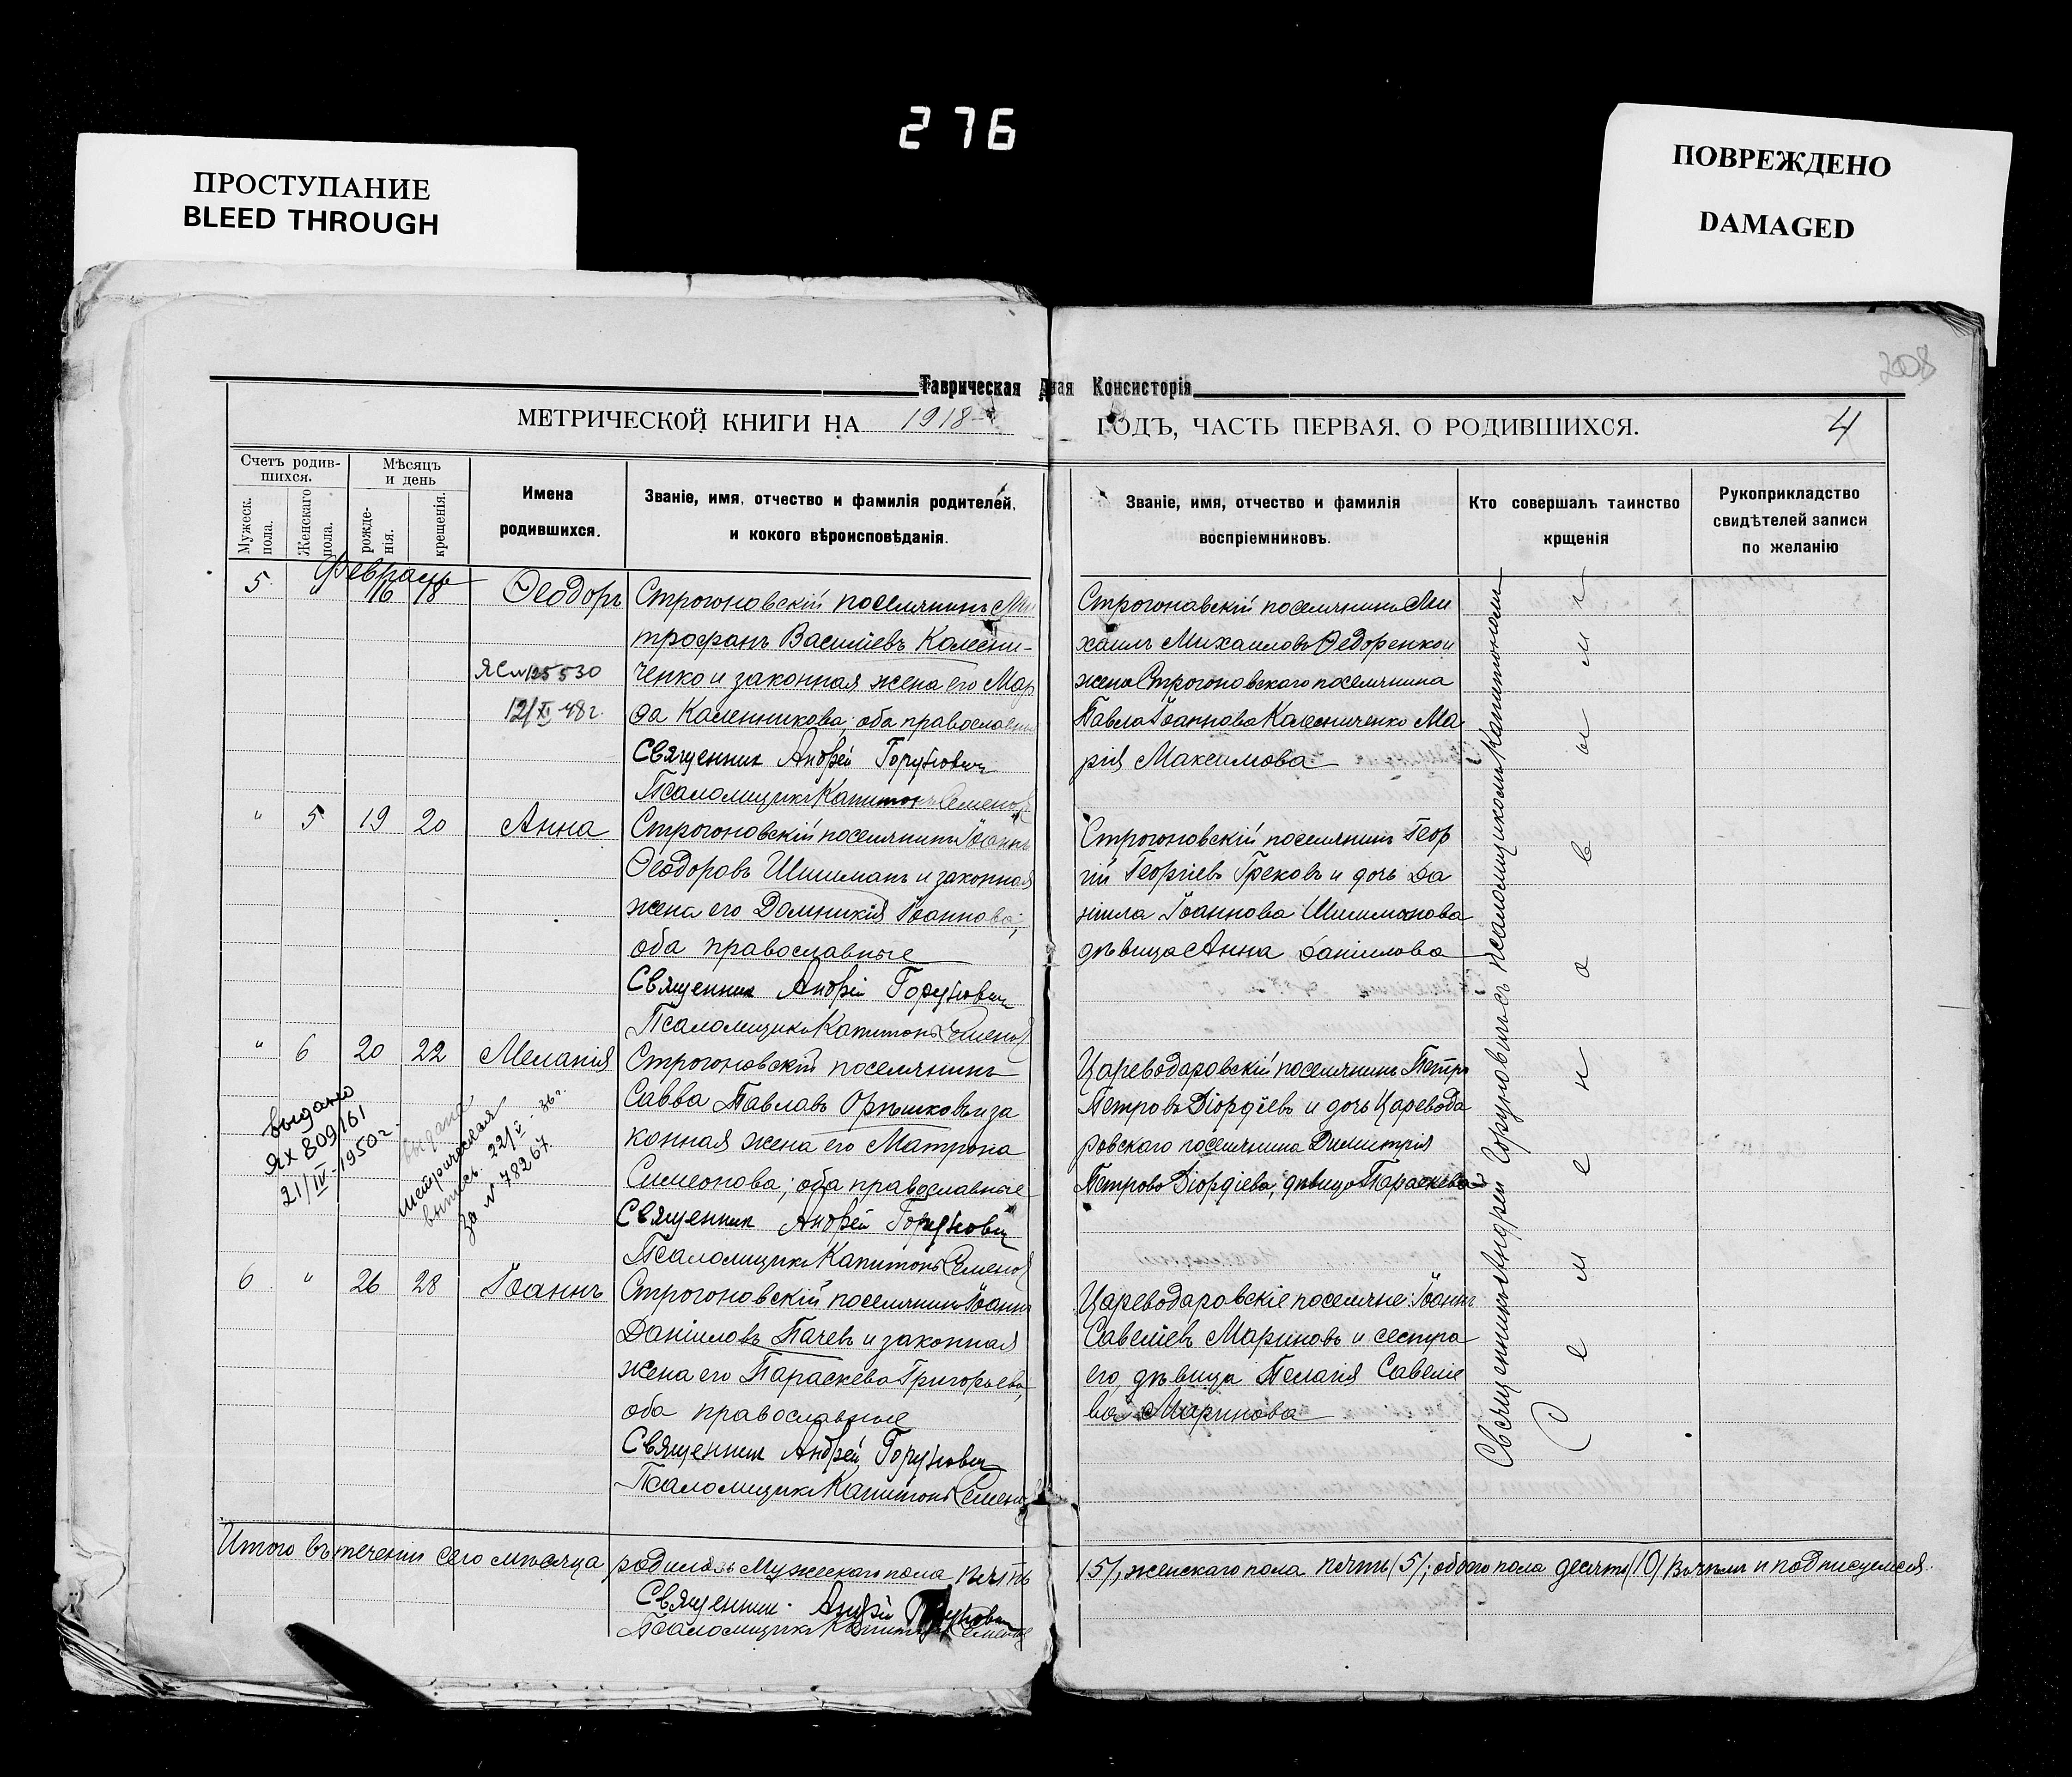 276
ПРОСТУПАНИЕ
BLEED THROUGH
ПОВРЕЖДЕНО
DAMAGED
208
Таврическая ная Консисторія
МЕТРИЧЕСКОЙ КНИГИ НА 1918 ГОДЪ, ЧАСТЬ ПЕРВАЯ, О РОДИВШИХСЯ.
4
Счетъ родив-
шихся.
Мужеск. пола.
Женскаго пола.
Мѣсяцъ
и день
рожде-
нія.
крещенія.
Имена
родившихся.
Званіе, имя, отчество и фамилія родителей,
и кокого вѣроисповѣданія.
Званіе, имя, отчество и фамилія
воспріемниковъ.
Кто совершалъ таинство
крщенія
Рукоприкладство
свидѣтелей записи
по желанію
Февраль
5. 16 18 Ѳеодоръ
Строгоновскій поселянинъ Ми
трофанъ Василіевъ Колесни-
ченко и законная жена его Мар
ѳа Каленникова; оба православные
Священник Андрей Горунович
Псаломщикъ Капитонъ Семенов
ЯС №125530
12/X 48г.
Строгонавскій поселянинъ Ми
хаилъ Михаиловъ Ѳедоренко и
жена Строгоновскаго поселянина
Павла Іоаннова Колесниченко Ма
рія Максимова
" 5 19 20 Анна
Строгоновскій поселянинъ Іоаннъ
Ѳеодоровъ Шишманъ и законная
жена его Домникія Іоаннова;
оба православные
Священник Андрей Горунович
Псаломщикъ Капитонъ Семенов
Строгоновскій поселянинъ Геор
гій Георгіевъ Грековъ и дочь Да
ніила Іоаннова Шишманова
дѣвица Анна Даніилова
" 6 20 22 Меланія
Строгоновскій поселянинъ
Савва Павлавъ Орѣшковъ и за
конная жена его Матрона
Симеонова; оба православные
Священник Андрей Горунович
Псаломщикъ Капитонъ Семенов
выдано
ЯХ 809161
21/IV-1950г.
выдана
метрическая
выпись 22/V-36г.
За № 78267.
Цареводаровскій поселянинъ Петръ
Петровъ Діордіевъ и дочь Царевода
ровскаго поселянина Димитрія
Петрова Діордіева, дѣвица Параскева
6 " 26 28 Іоаннъ
Строгоновскій поселянинъ Іоаннъ
Даніиловъ Пачевъ и законная
жена его Параскева Григорьева,
оба православные
Священник Андрей Горунович
Псаломщикъ Капитонъ Семенов
Цареводаровскіе поселяне: Іоаннъ
Савеліевъ Мариновъ и сестра
его, дѣвица Пелагія Савеліе
ва Маринова
Священникъ Андрей Горуновичъ съ псаломщикомъ Капитономъ
Семеновымъ
Итого въ теченіи сего мѣсяца родилось мужескаго пола пять /5/, женскаго пола пять /5/; обоего пола десять /10/ въ чемъ и подписуемся.
Священник Андрей Горунович
Псаломщикъ Капитонъ Семенов